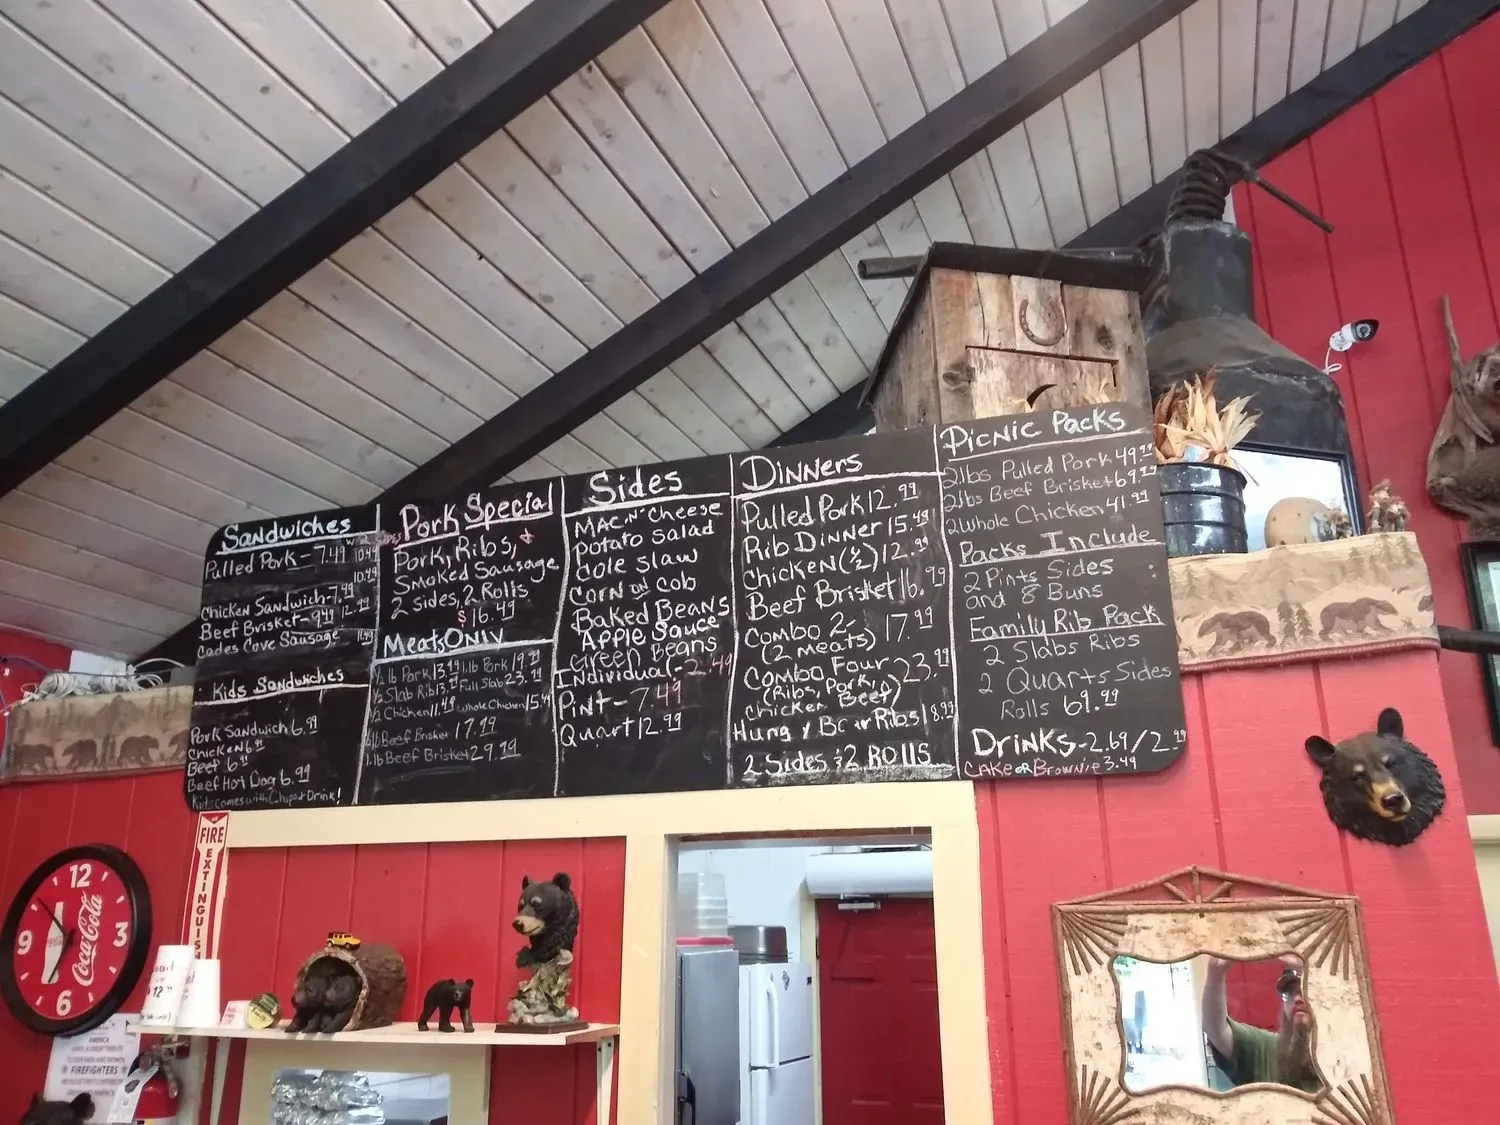 Sandwiches
w 2 sides
Pulled Pork - 7.49 10.49
10.49
Chicken Sandwich - 7.49
Beef Brisket - 9.49 12.99
Cades Cove Sausage 11.99
Kids Sandwiches
Pork Sandwich 6.99
Chicken 6.99
Beef 6.99
Beef Hot Dog 6.99
Kids Comes with Chips & Drink!
Pork Special
Pork, Ribs, &
Smoked Sausage
2 sides, 2 Rolls
$16.49
Meats ONLY
½ lb Pork 13.99 1 lb Pork 19.99
½ Slab Rib 13.99 Full Slab 23.99
½ Chicken 11.49 whole Chicken 15.49
½ lb Beef Brisket 17.99
1 lb Beef Brisket 29.99
Sides
MAC 'N' Cheese
Potato Salad
Cole Slaw
Corn on Cob
Baked Beans
Apple Sauce
Green Beans
Individual - 2.49
Pint - 7.49
Quart 12.99
Dinners
Pulled Pork 12.99
Rib Dinner 15.49
Chicken (½) 12.99
Beef Brisket 16.99
Combo 2 - 17.99
(2 meats)
Combo Four 23.99
(Ribs, Pork,
Chicken Beef)
Hungry Bear Ribs 18.99
2 Sides & 2 ROLLS
Picnic Packs
2 lbs Pulled Pork 49.99
2 lbs Beef Brisket 69.99
2 Whole Chicken 41.99
Packs Include
2 Pints Sides
and 8 Buns
Family Rib Pack
2 Slabs Ribs
2 Quarts Sides
Rolls 69.99
Drinks - 2.69/2.99
CAKE or Brownie 3.49
FIRE
EXTINGUIS
12
3
6
9
Coca-Cola
$12.99
AMERICA
FIREFIGHTERS